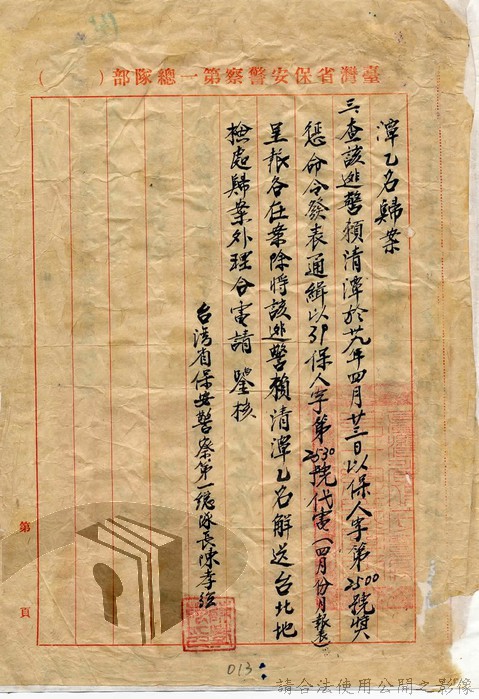 臺灣省保安警察第一總隊部( )
潭乙名歸案
三、查該逃警賴清潭於廿九年四月廿三日以保人字第2500號獎
懲命令發表通緝以39保人字第2530號代電(四月份月報表)
呈報各在案除將該逃警賴清潭乙名解送台北地
檢處歸案外理合電請 鑒核
台湾省保安警察第一總隊長陳孝強
第 頁
013
請合法使用公開之影像